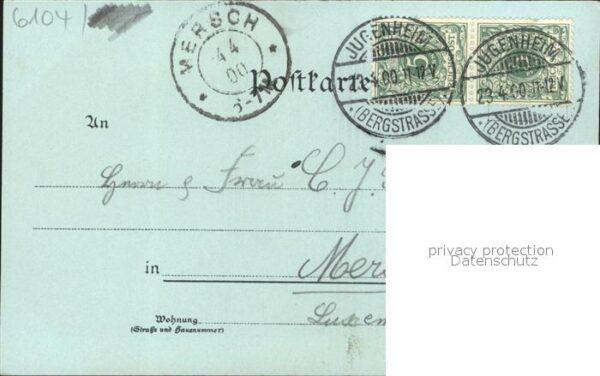 6104
MERSCH
4 4
00
5-7
Postkarte
JUGENHEIM
23.4.00.11-12V.
(BERGSTRASSE)
JUGENHEIM
23.4.00.11-12V.
(BERGSTRASSE)
An
Herrn & Frau C. J.
in Mer
Luxem
Wohnung
(Straße und Hausnummer)
privacy protection
Datenschutz